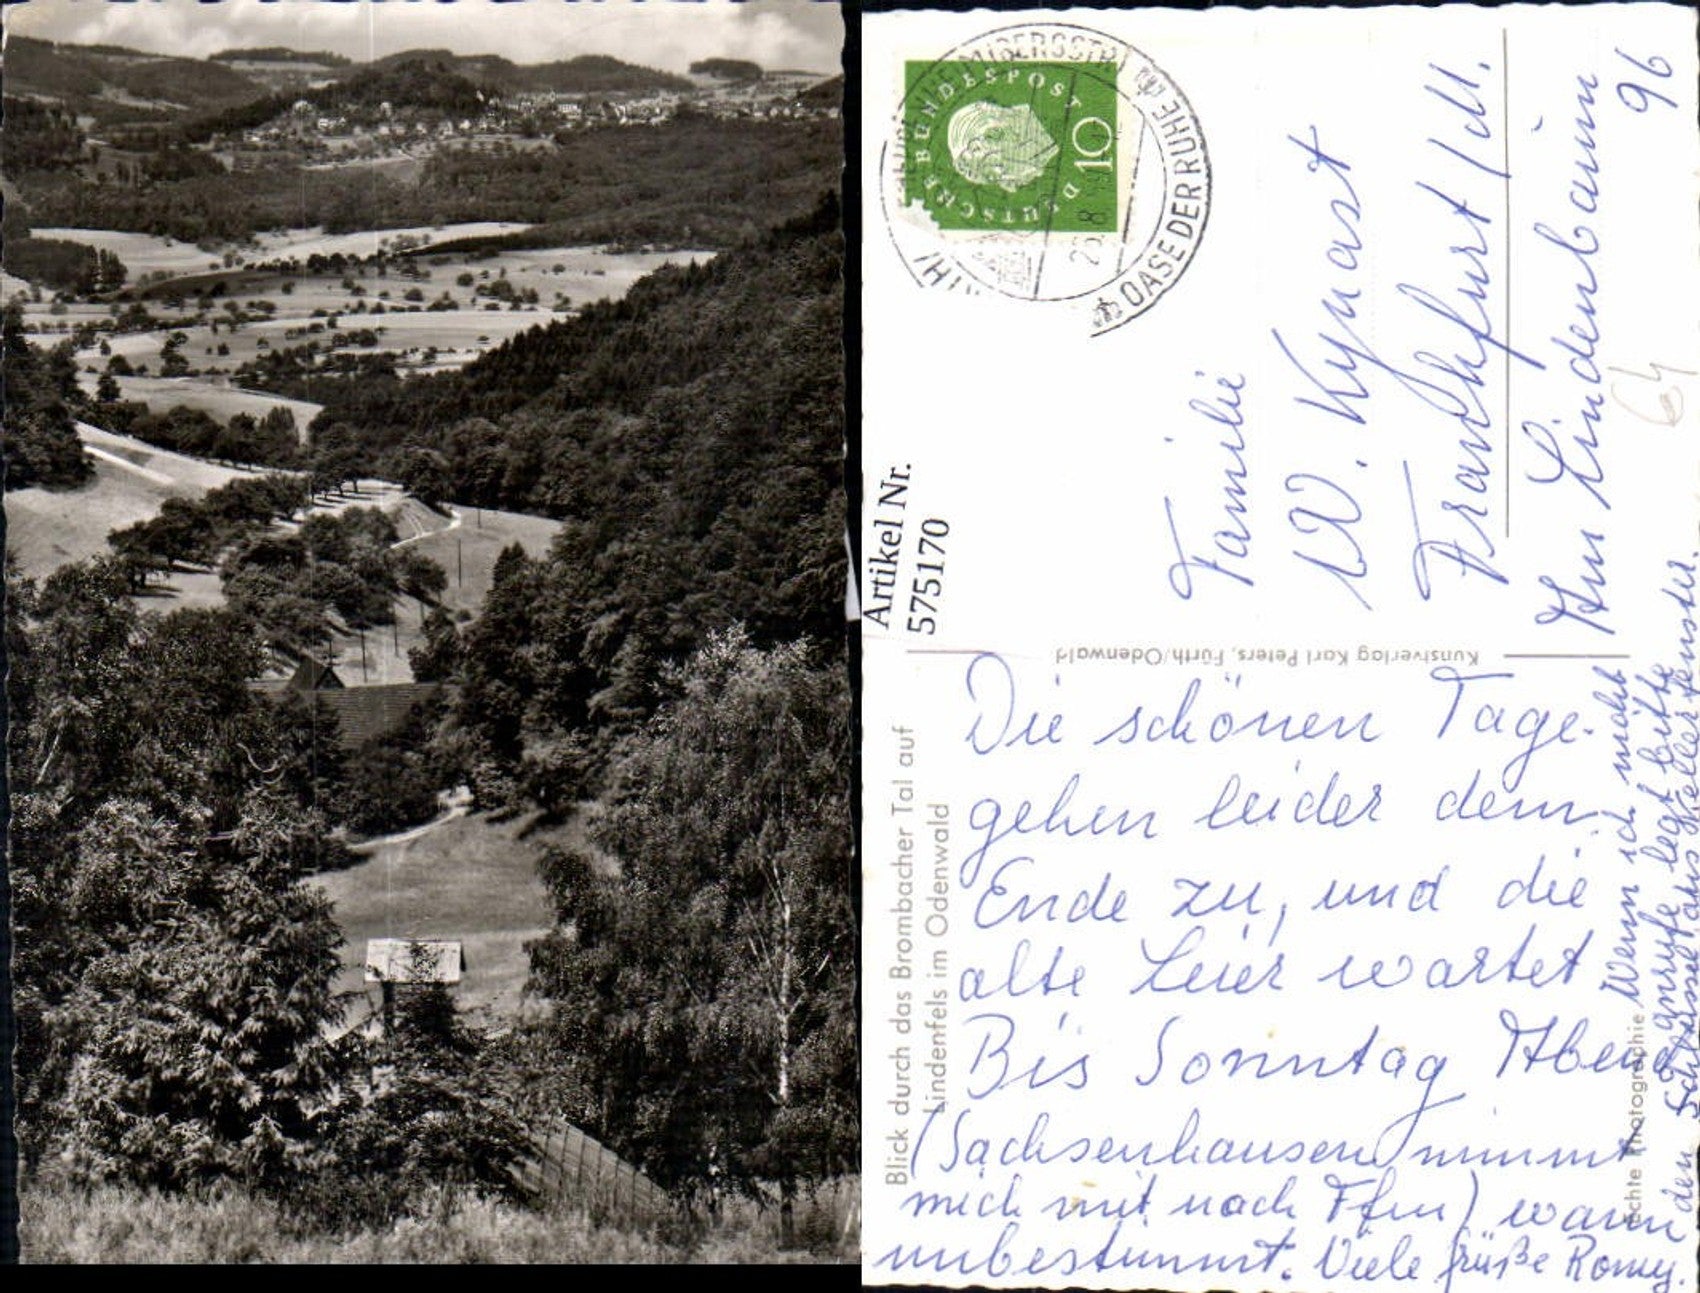 DEUTSCHE BUNDESPOST
10
OASE DER RUHE
Familie
W. Kynast
Frankfurt/M.
Am Lindenbaum
96
64
Artikel Nr.
575170
Kunstverlag Karl Peters, Fürth/Odenwald
Blick durch das Brombacher Tal auf
Lindenfels im Odenwald
Die schönen Tage
gehen leider dem
Ende zu, und die
alte Leier wartet
Bis Sonntag Abend
(Sachsenhausen nimmt
mich mit nach Ffm) wann
unbestimmt. Viele Grüße Romy.
Wenn ich nicht
anrufe legt bitte
den Schlüssel ans Kellerfenster.
echte Photographie